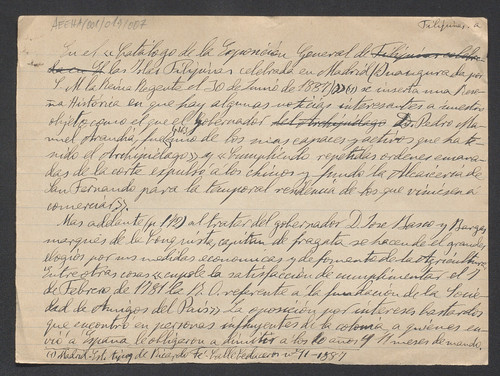 AECHA/001/019/007
Filipinas. a
En el «Catálogo de la Exposición General de Filipinas celebra
da en M las Islas Filipinas celebrada en Madrid (Inaugurada por
S. M. la Reina Regente el 30 de Junio de 1887)» (1) se inserta una Rese-
ña Histórica en que hay algunas noticias interesantes a nuestro
objeto como el que el gobernador del Archipiélago D. Pedro Ma-
nuel Arandía, fue uno de los mas capaces y activos que ha te-
nido el Archipiélago» y «cumpliendo repetidas ordenes emana-
das de la corte expulsó a los chinos y fundó la Alcaicería de
San Fernando para la temporal residencia de los que viniesen a
comerciar».
Mas adelante (p 119) al tratar del gobernador D. José Basco y Vargas
marqués de la Conquista, capitan de fragata se hacen de el grandes
elogios por sus medidas economicas y de fomento de la Agricultura
Entre otras cosas «cupole la satisfacción de cumplimentar el 7
de Febrero de 1781 la R. O. referente a la fundación de la Socie-
dad de Amigos del País». La oposición por intereses bastardos
que encontró en personas influyentes de la colonia a quienes en-
vió a España le obligaron a dimitir a los 10 años y 11 meses de mando.
(1) Madrid- Est. tipog. de Ricardo Fé- Calle Cedaceros nº 11-1887